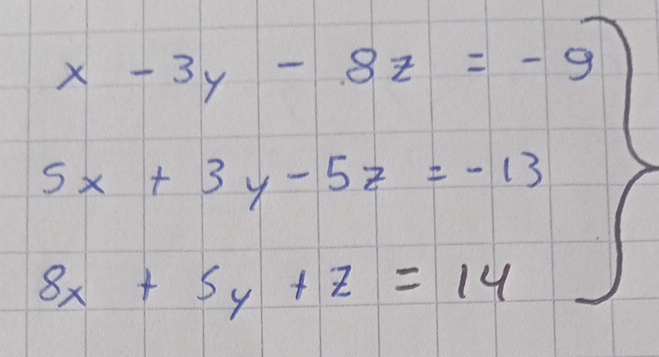 x - 3y - 8z = -9
5x + 3y - 5z = -13
8x + 5y + z = 14